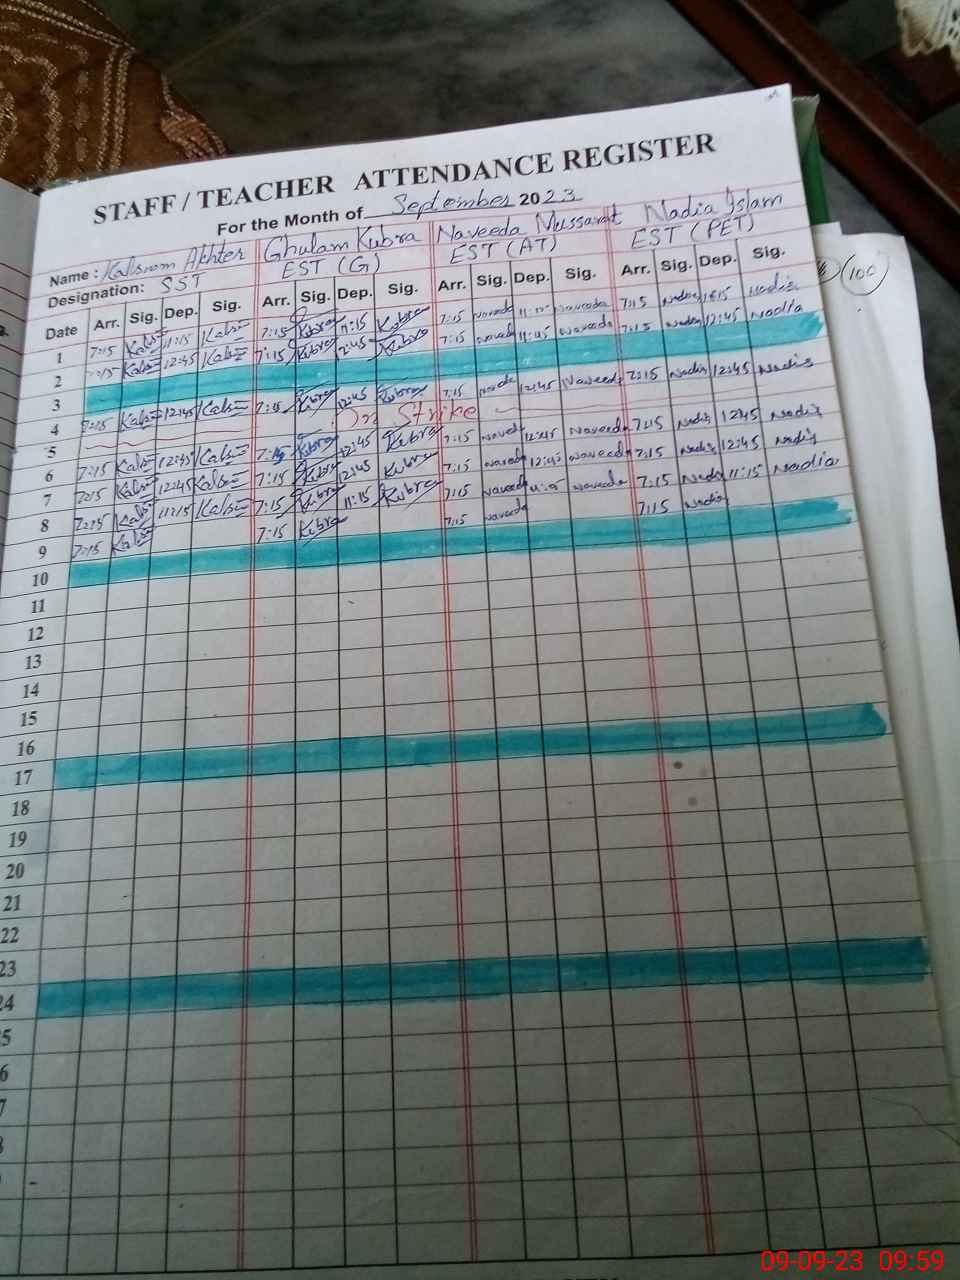 STAFF / TEACHER ATTENDANCE REGISTER
For the Month of September 2023
Name : Kalsoom Akhter Ghulam Kubra Naveeda Mussarat Nadia Islam
Designation: SST EST (G) EST (AT) EST (PET)
Date Arr. Sig. Dep. Sig. Arr. Sig. Dep. Sig. Arr. Sig. Dep. Sig. Arr. Sig. Dep. Sig.
1 7:15 11:15 7:15 Kubra 11:15 Kubra 7:15 Naveeda Naveeda 7:15 Nadia Nadia
2 7:15 12:45 7:15 Kubra 12:45 Kubra 7:15 Naveeda Naveeda 7:15 Nadia 12:45 Nadia
3
4 7:15 12:45 7:15 Kubra 12:45 Kubra 7:15 12:45 Naveeda 7:15 Nadia 12:45 Nadia
5 On Strike
6 7:15 12:45 Kubra 12:45 Kubra 7:15 Naveeda 12:45 Naveeda 7:15 Nadia 12:45 Nadia
7 7:15 12:45 7:15 Kubra 12:45 Kubra 7:15 Naveeda 12:45 Naveeda 7:15 Nadia 12:45 Nadia
8 7:15 11:15 7:15 Kubra 11:15 Kubra 7:15 Naveeda Naveeda 7:15 Nadia 11:15 Nadia
9 7:15 7:15 Kubra 7:15 Naveeda 7:15 Nadia
10
11
12
13
14
15
16
17
18
19
20
21
22
23
24
(100)
09-09-23 09:59